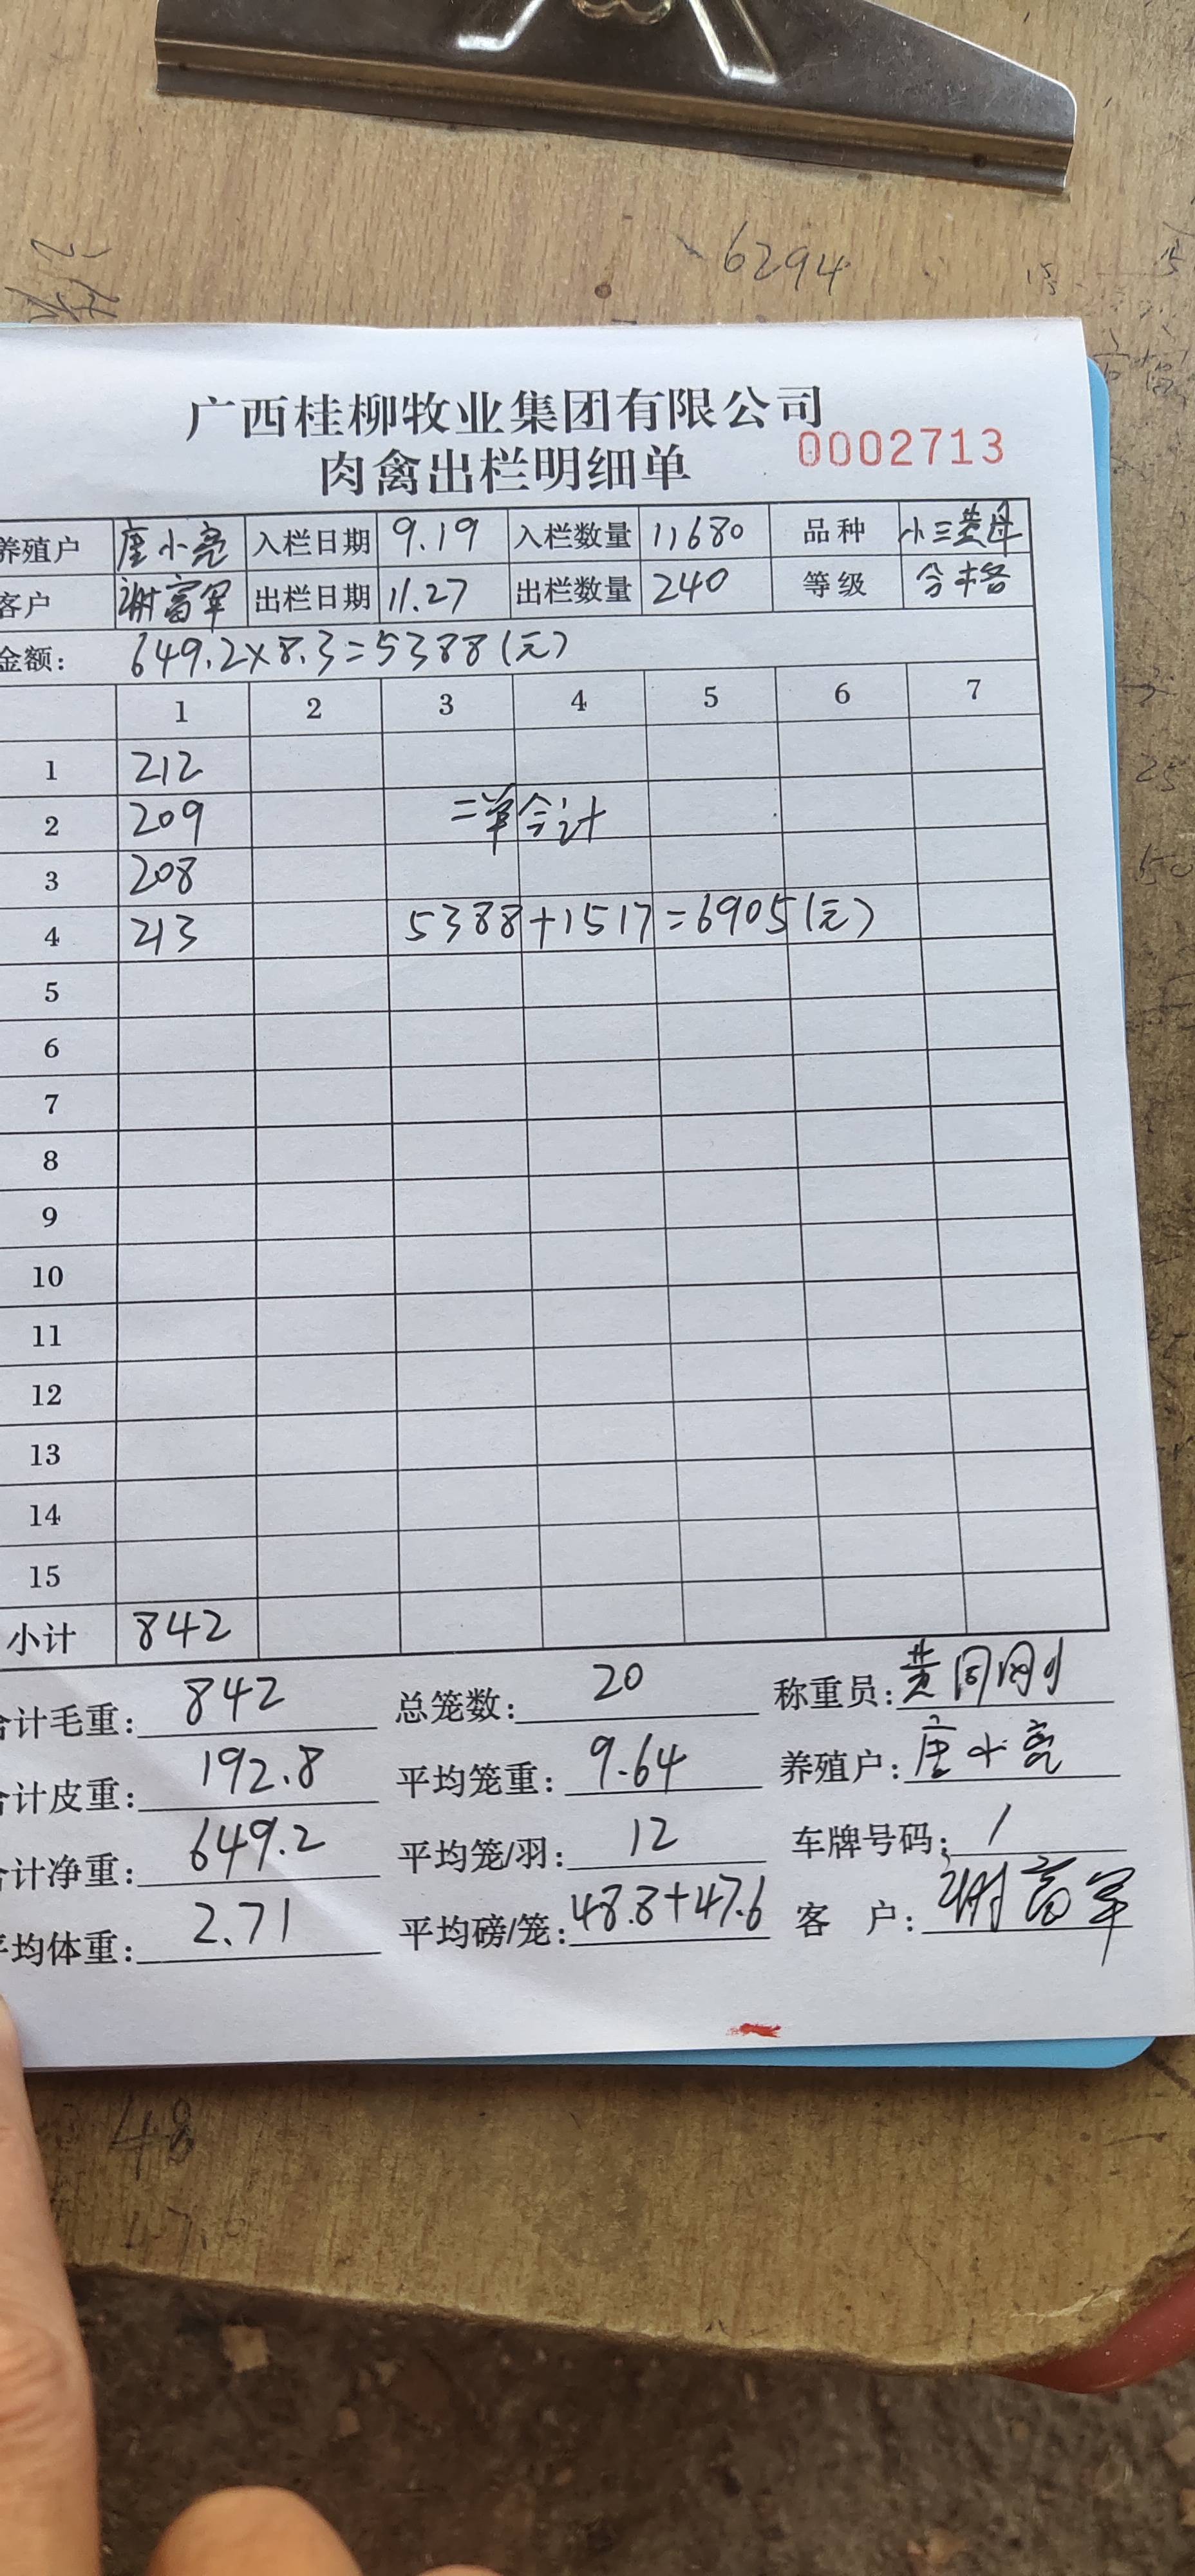 6294
15
15
广西桂柳牧业集团有限公司
肉禽出栏明细单 0002713
养殖户 唐小亮 入栏日期 9.19 入栏数量 11680 品种 小三黄母
客户 谢富军 出栏日期 11.27 出栏数量 240 等级 合格
金额: 649.2×8.3=5388(元)
1 2 3 4 5 6 7
1 212
2 209 二单合计
3 208
4 213 5388+1517=6905(元)
5
6
7
8
9
10
11
12
13
14
15
小计 842
合计毛重: 842 总笼数: 20 称重员: 黄同刚
合计皮重: 192.8 平均笼重: 9.64 养殖户: 唐小亮
合计净重: 649.2 平均笼/羽: 12 车牌号码: /
平均体重: 2.71 平均磅/笼: 48.8+47.6 客 户: 谢富军
48
47.